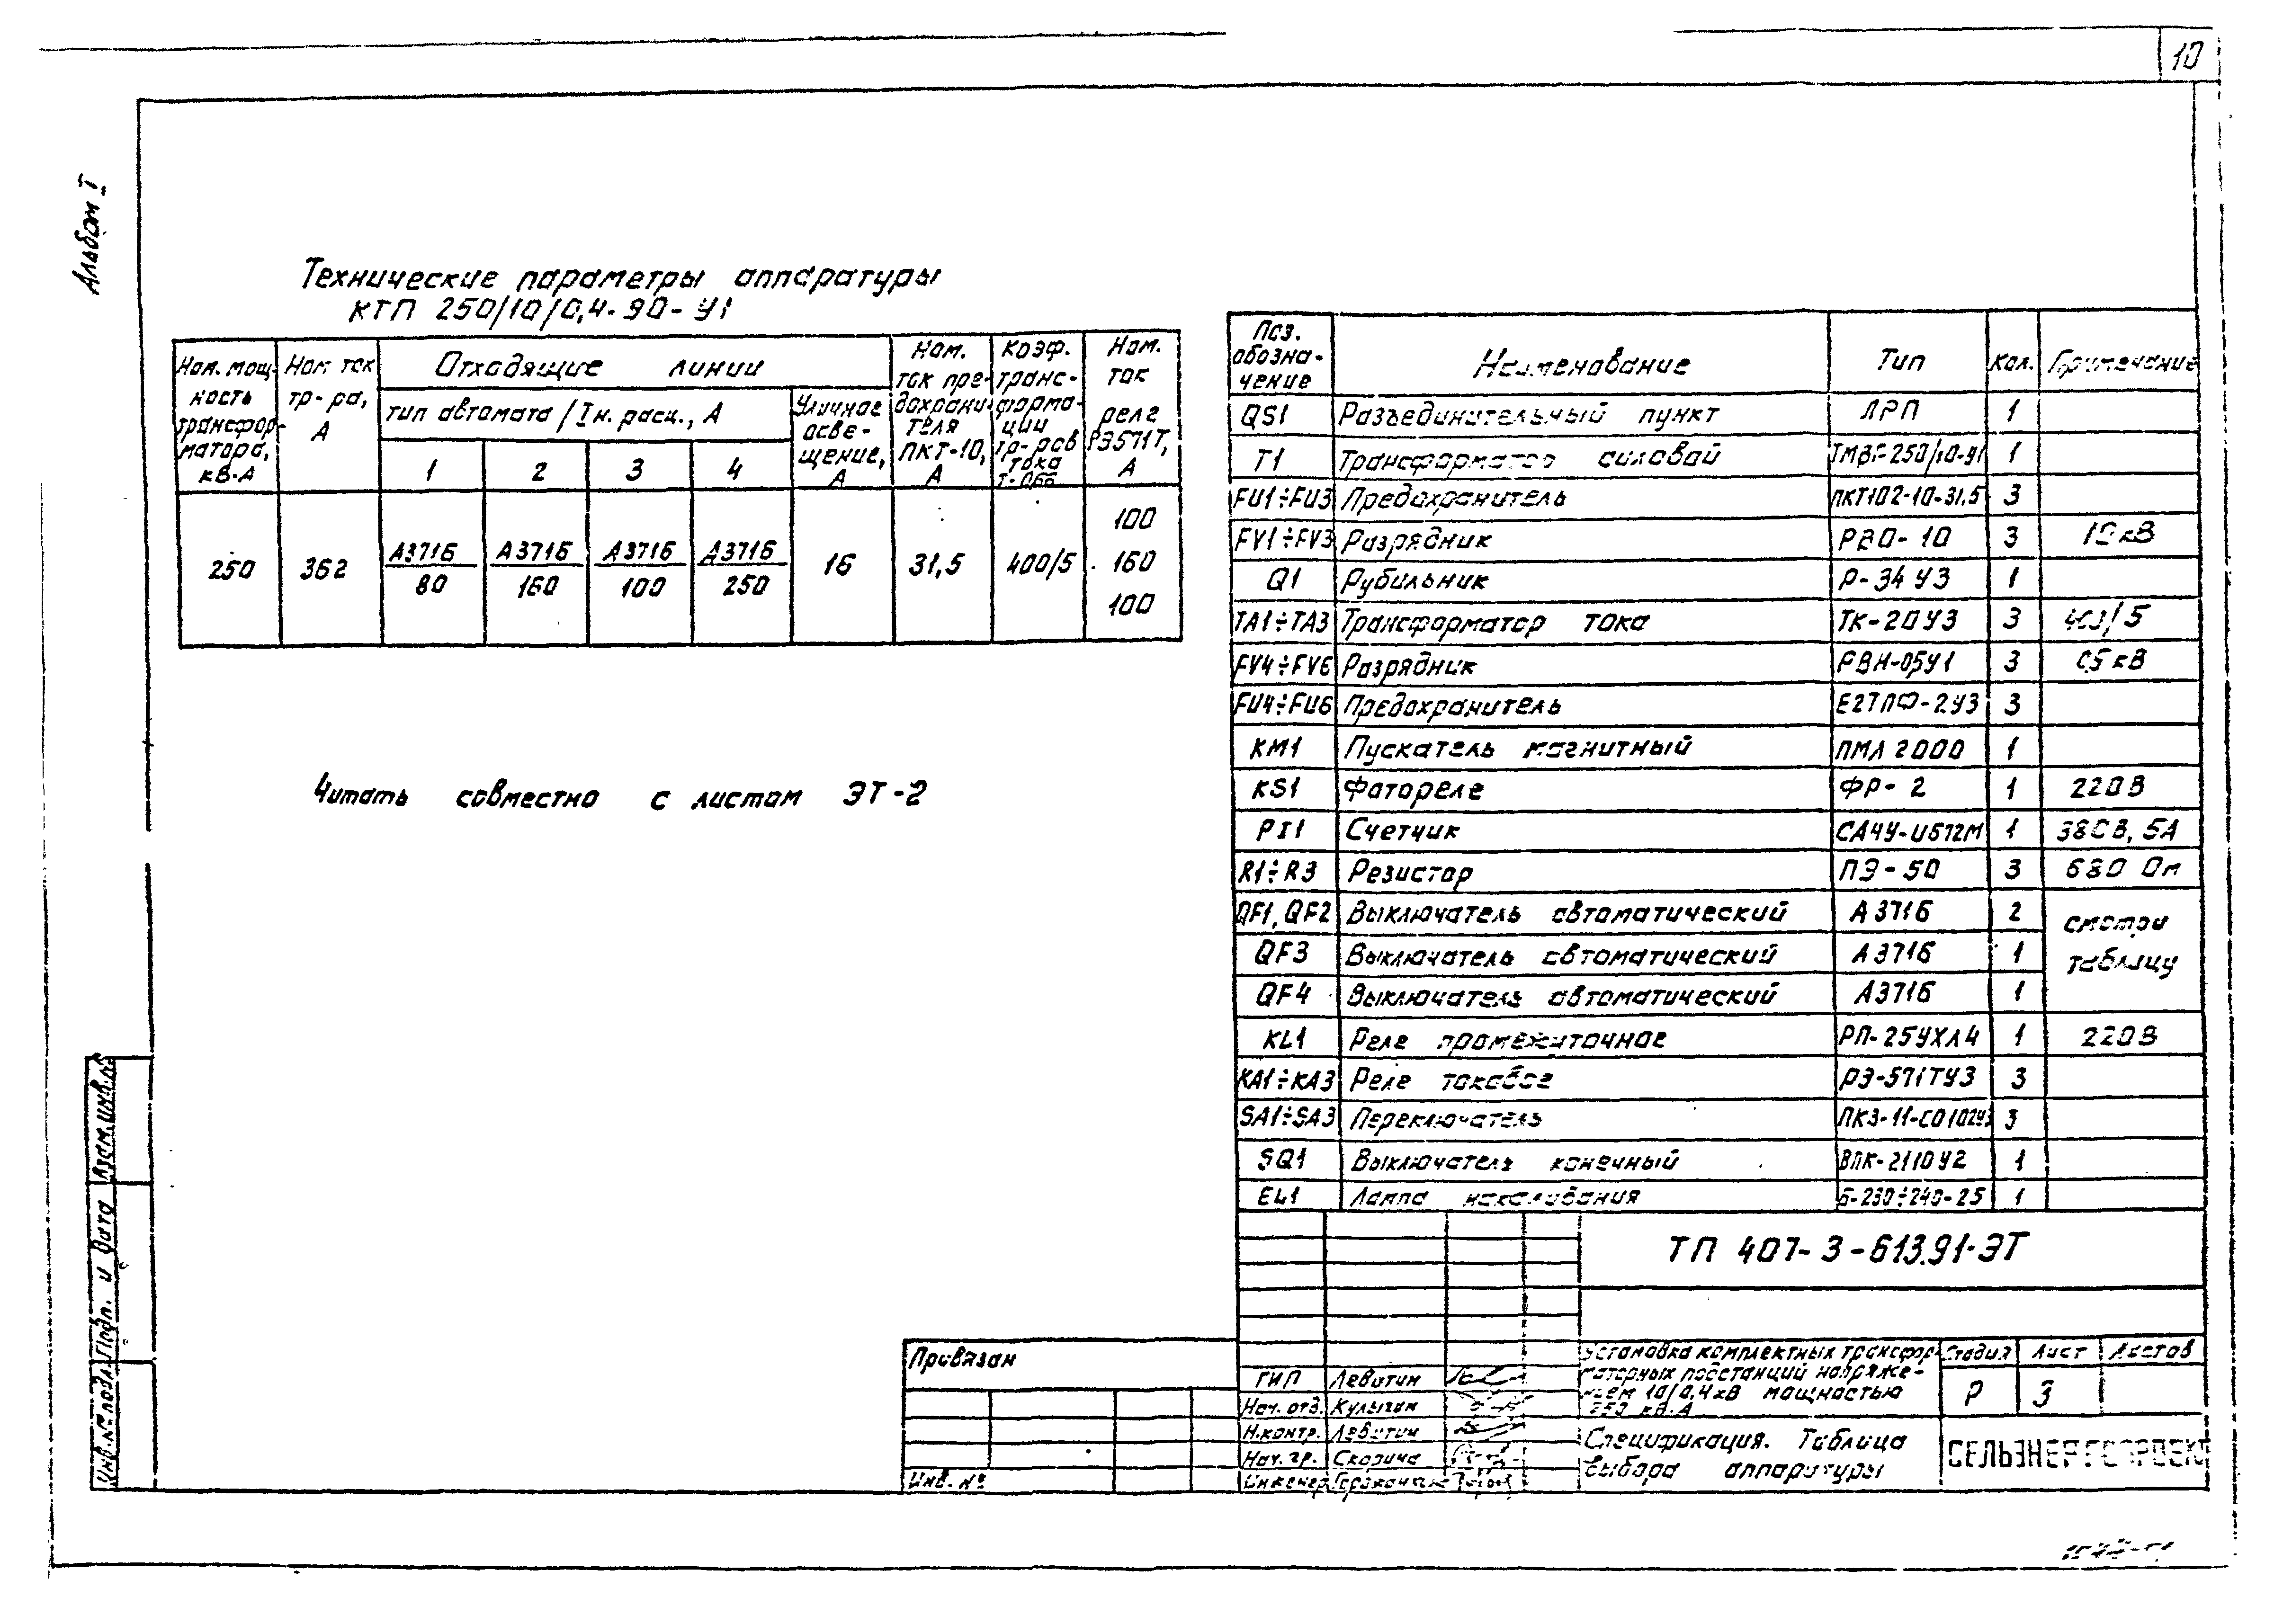 10
Альбом I
Технические параметры аппаратуры
КТП 250/10/0,4-90-У1
Ном. мощ-
ность
трансфор-
матора,
кВ·А
Ном ток
тр-ра,
А
Отходящие линии
тип автомата / Iн. расц., А
1 2 3 4
Уличное
осве-
щение,
А
Ном.
ток пре-
дохрани-
теля
ПКТ-10,
А
Коэф.
транс-
форма-
ции
тр-ров
тока
Ном.
ток
реле
РЭ571Т,
А
250 362 А3716/80 А3716/160 А3716/100 А3716/250 16 31,5 400/5 100
160
100
Читать совместно с листом ЭТ-2
Поз.
обозна-
чение
Наименование Тип Кол. Примечание
QS1 Разъединительный пункт ЛРП 1
T1 Трансформатор силовой ТМВГ-250/10-У1 1
FU1÷FU3 Предохранитель ПКТ102-10-31,5 3
FV1÷FV3 Разрядник РВО-10 3 10 кВ
Q1 Рубильник Р-34 У3 1
TA1÷TA3 Трансформатор тока ТК-20У3 3 400/5
FV4÷FV6 Разрядник РВН-05У1 3 05 кВ
FU4÷FU6 Предохранитель Е27ПФ-2У3 3
KM1 Пускатель магнитный ПМЛ 2000 1
KS1 Фотореле ФР-2 1 220В
PI1 Счетчик СА4У-И672М 1 380В, 5А
R1÷R3 Резистор ПЭ-50 3 680 Ом
QF1, QF2 Выключатель автоматический А3716 2
QF3 Выключатель автоматический А3716 1
QF4 Выключатель автоматический А3716 1
смотри
таблицу
KL1 Реле промежуточное РП-25УХЛ4 1 220В
KA1÷KA3 Реле токовое РЭ-571ТУ3 3
SA1÷SA3 Переключатель ПКЗ-11-С0102У3 3
SQ1 Выключатель конечный ВПК-2110У2 1
EL1 Лампа накаливания Б-230÷240-25 1
ТП 407-3-613.91-ЭТ
Привязан
Инв. №
ГИП Левитин
Нач. отд. Кулыгин
Н.контр. Левитин
Нач. гр. Скорина
Инженер
Установка комплектных трансфор-
маторных подстанций напряже-
нием 10/0,4кВ мощностью
250 кВ·А
Спецификация. Таблица
выбора аппаратуры
Стадия Лист Листов
Р 3
СЕЛЬЭНЕРГОПРОЕКТ
Взам.инв.№
Подп. и дата
Инв.№ подл.